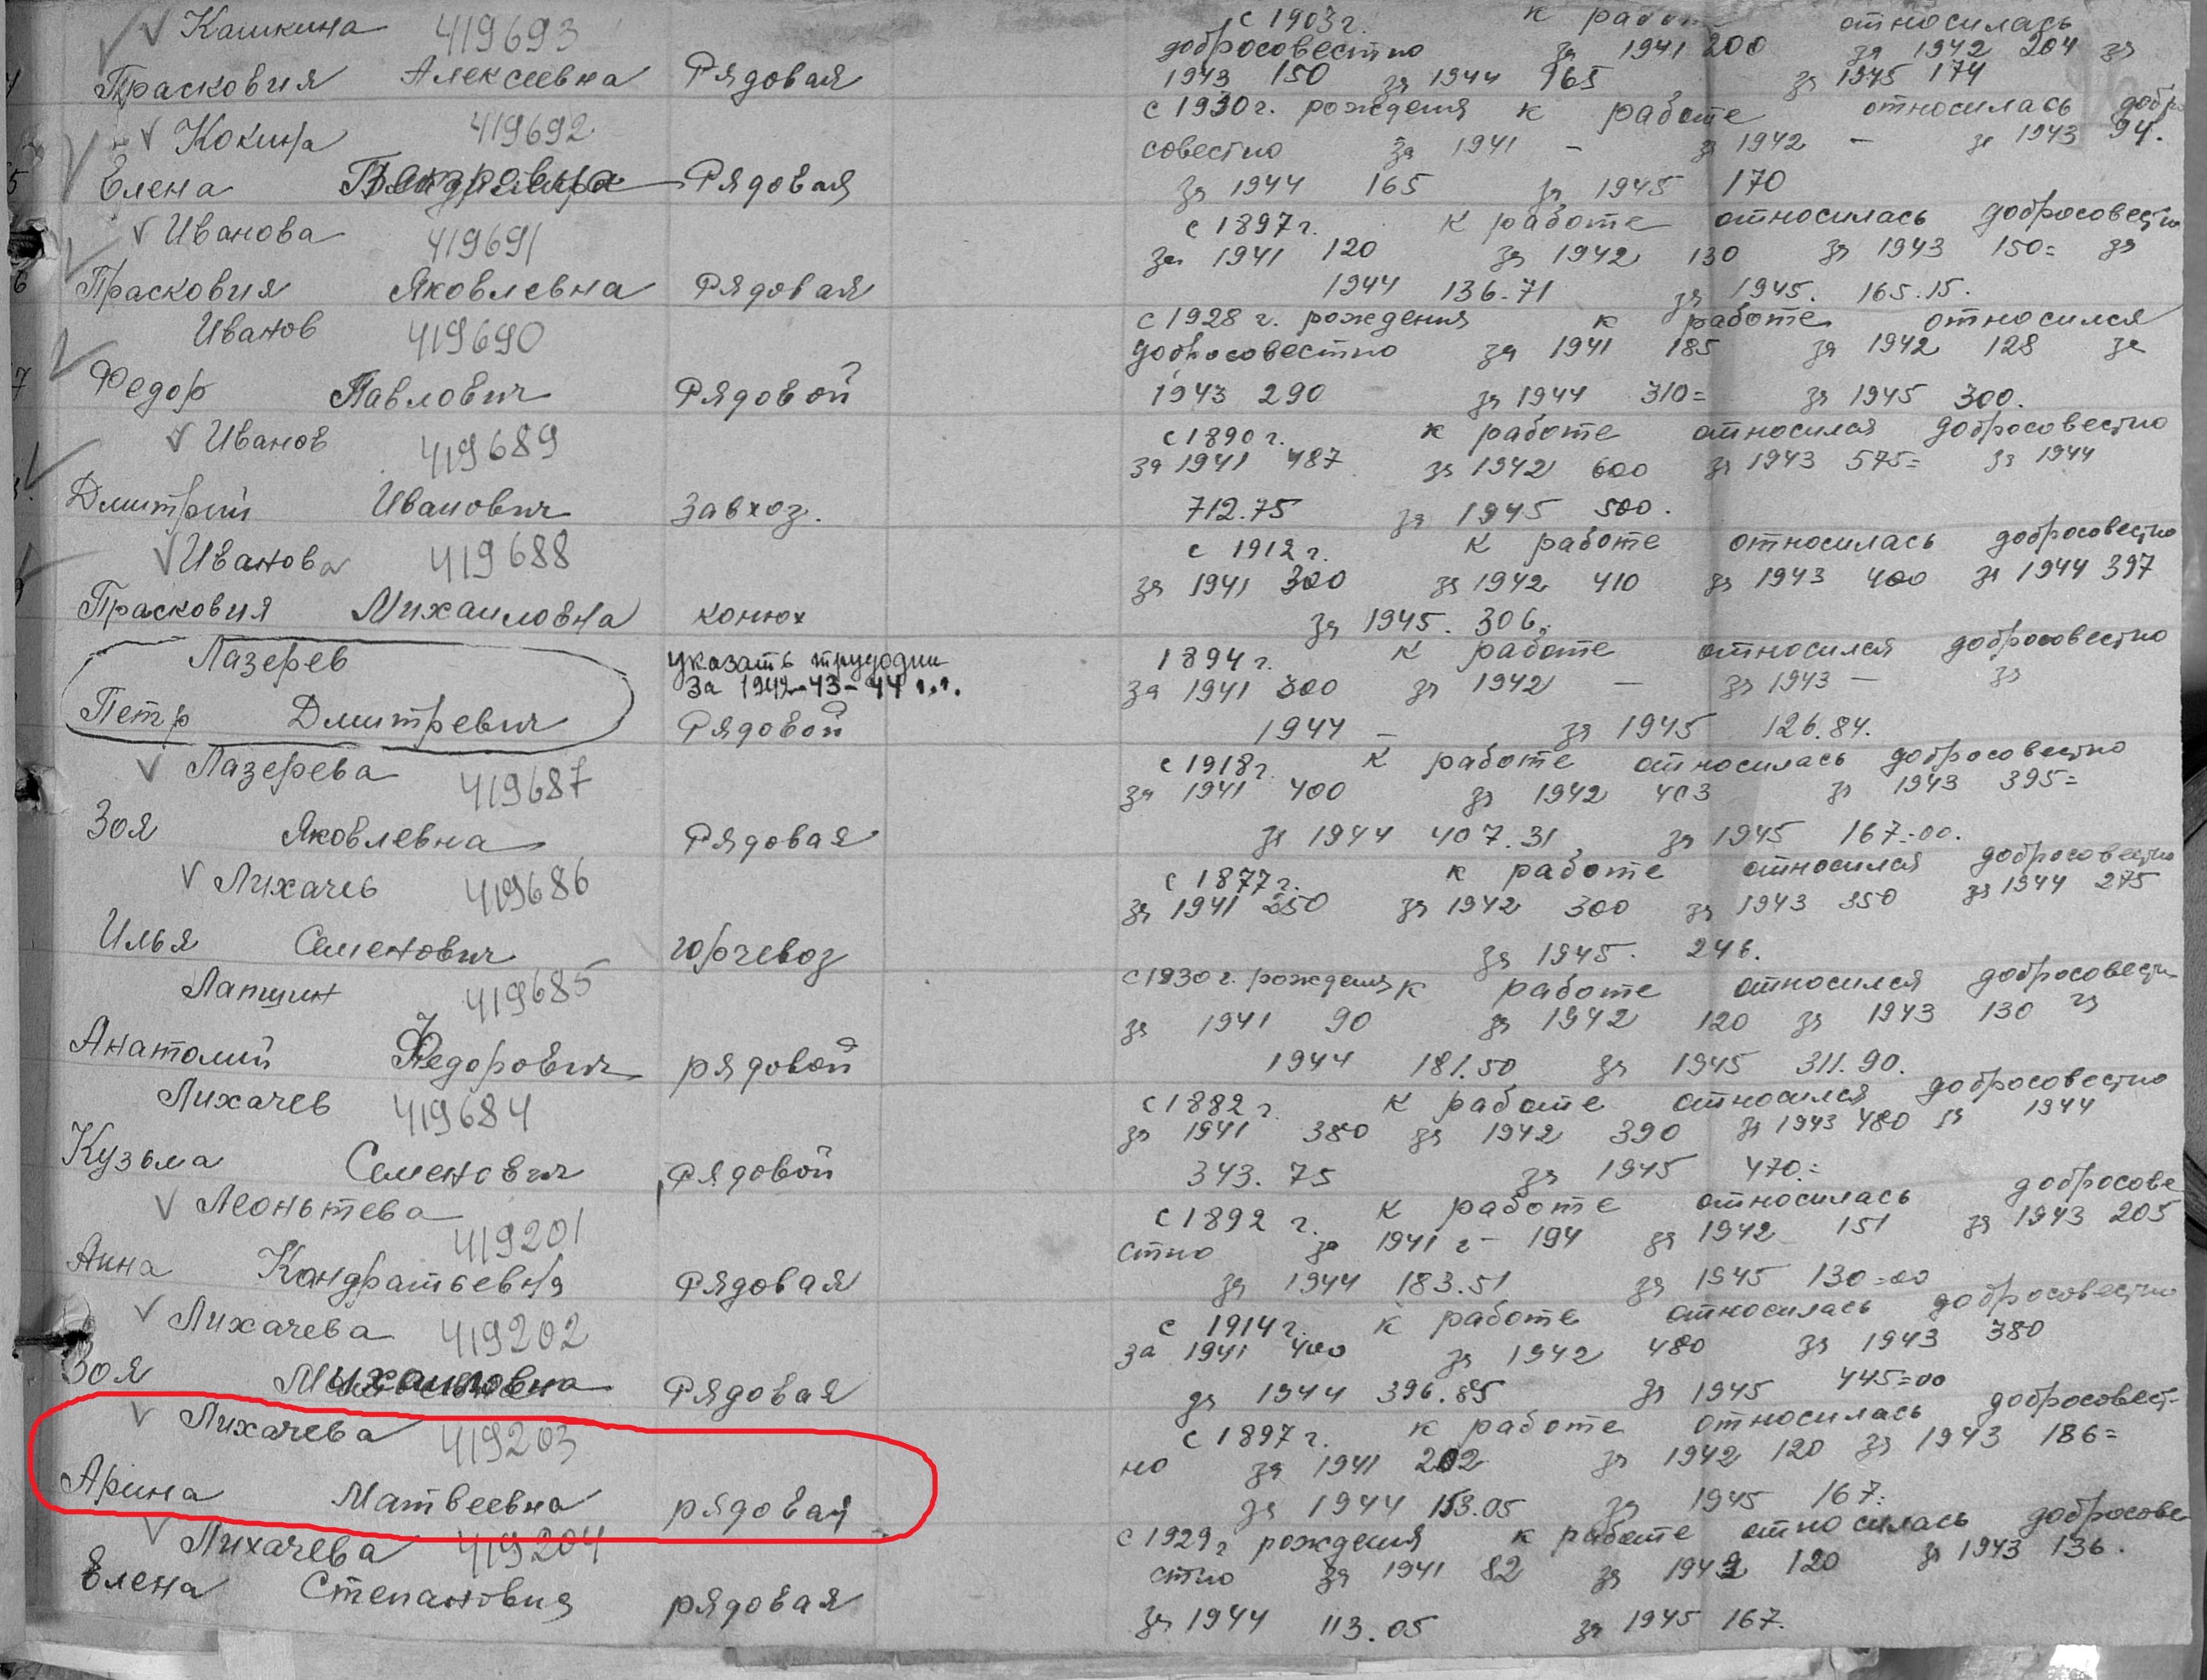 Кашкина 419693 с 1903г. к работе относилась
добросовестно за 1941 200 за 1942 204 за
Прасковия Алексеевна Рядовая 1943 150 за 1944 165 за 1945 174
Кокина 419692 с 1930г. рождения к работе относилась добро
совестно за 1941 – за 1942 – за 1943 94.
Елена Рядовая за 1944 165 за 1945 170
Иванова 419691 с 1897г. к работе относилась добросовестно
за 1941 120 за 1942 130 за 1943 150= за
Прасковия Яковлевна Рядовая 1944 136.71 за 1945. 165.15.
Иванов 419690 с 1928 г. рождения к работе относился
добросовестно за 1941 185 за 1942 128 за
Федор Павлович Рядовой 1943 290 за 1944 310= за 1945 300.
Иванов 419689 с 1890г. к работе относился добросовестно
за 1941 487 за 1942 600 за 1943 575= за 1944
Дмитрий Иванович Завхоз. 712.75 за 1945 500.
Иванова 419688 с 1912г. к работе относилась добросовестно
за 1941 300 за 1942 410 за 1943 400 за 1944 397
Прасковия Михаиловна конюх за 1945. 306.
Лазерев указать трудодни 1894г. к работе относился добросовестно
за 1942-43-44 г.г. за 1941 300 за 1942 – за 1943 – за
Петр Дмитревич Рядовой 1944 – за 1945 126.84.
Лазерева 419687 с 1918г. к работе относилась добросовестно
за 1941 400 за 1942 403 за 1943 395=
Зоя Яковлевна Рядовая за 1944 407.31 за 1945 167=00.
Лихачев 419686 с 1877г. к работе относился добросовестно
за 1941 250 за 1942 300 за 1943 350 за 1944 275
Илья Семенович горчевоз за 1945. 246.
Лапшин 419685 с 1930г. рождения к работе относился добросовестн
за 1941 90 за 1942 120 за 1943 130 за
Анатолий Федорович рядовой 1944 181.50 за 1945 311.90.
Лихачев 419684 с 1882г. к работе относился добросовестно
за 1941 380 за 1942 390 за 1943 480 за 1944
Кузьма Семенович рядовой 343.75 за 1945 470=
Леоньтева 419201 с 1892 г. к работе относилась добросове
стно за 1941 г – 194 за 1942 151 за 1943 205
Анна Кондратьевна Рядовая за 1944 183.51 за 1945 130=00
Лихачева 419202 с 1914г. к работе относилась добросовестно
за 1941 400 за 1942 480 за 1943 380
Зоя Михаиловна Рядовая за 1944 396.85 за 1945 445=00
Лихачева 419203 с 1897г. к работе относилась добросовест-
но за 1941 202 за 1942 120 за 1943 186=
Арина Матвеевна рядовая за 1944 153.05 за 1945 167=
Лихачева 419204 с 1929г рождения к работе относилась добросове
стно за 1941 82 за 1942 120 за 1943 136.
Елена Степановна рядовая за 1944 113.05 за 1945 167.